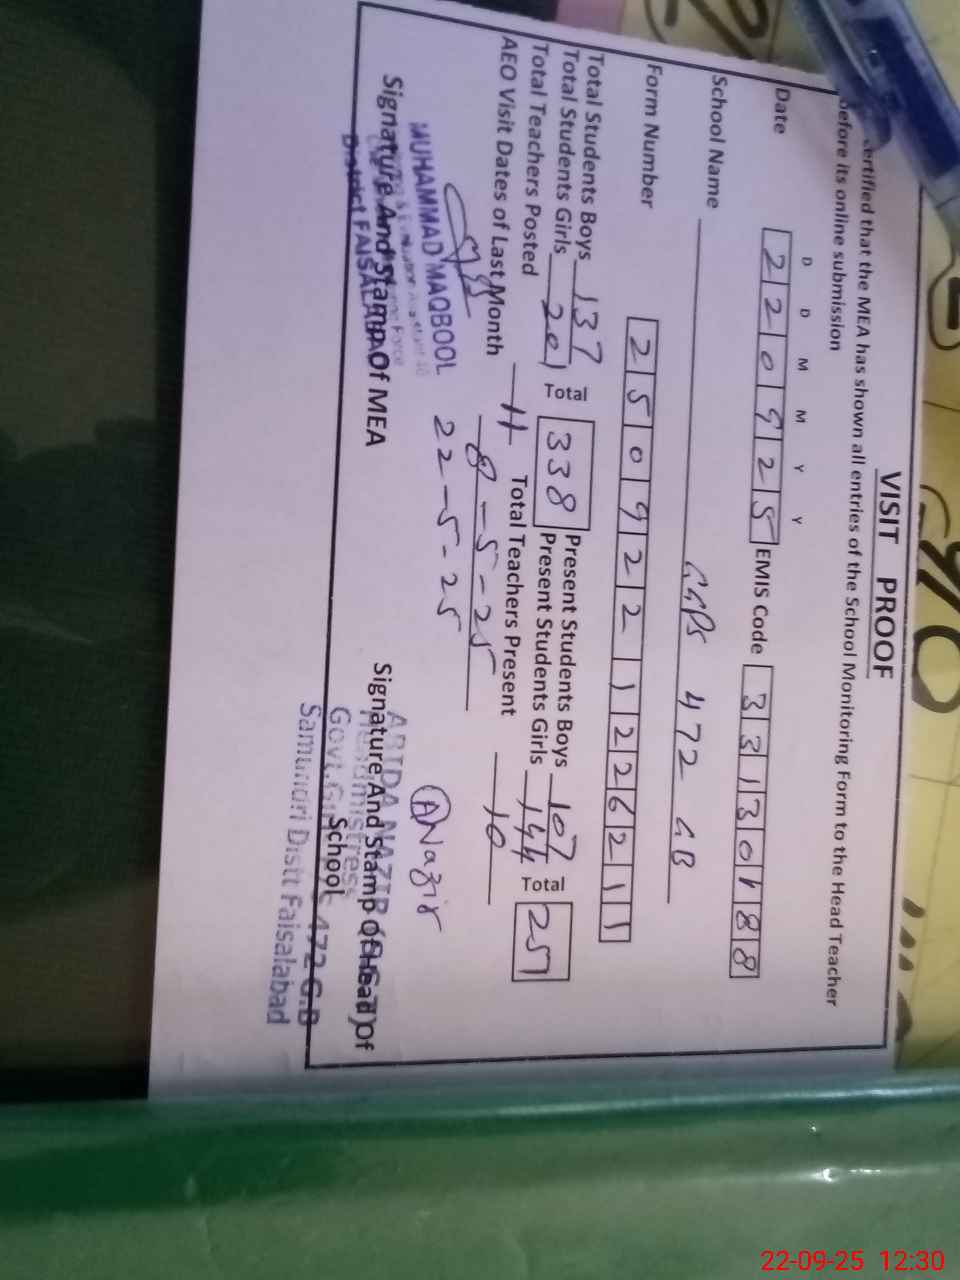 VISIT PROOF
certified that the MEA has shown all entries of the School Monitoring Form to the Head Teacher
before its online submission
D D M M Y Y
Date 220925 EMIS Code 33130188
School Name GGPS 472 GB
Form Number 2509221226211
Total Students Boys 137 Total 338 Present Students Boys 107 Total 251
Total Students Girls 201 Present Students Girls 144
Total Teachers Posted 11 Total Teachers Present 10
AEO Visit Dates of Last Month 8-5-25
22-5-25
MUHAMMAD MAQBOOL
District FAISALABAD
Signature And Stamp Of MEA
ANazir
ABIDA NAZIR
Headmistress
Signature And Stamp Of Head Of
School
Govt. 472 G.B
Samundri Distt Faisalabad
22-09-25 12:30